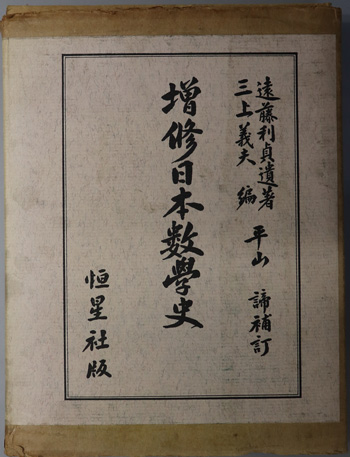 遠藤利貞遺著
三上義夫 編 平山 諦補訂
增修日本數學史
恒星社版